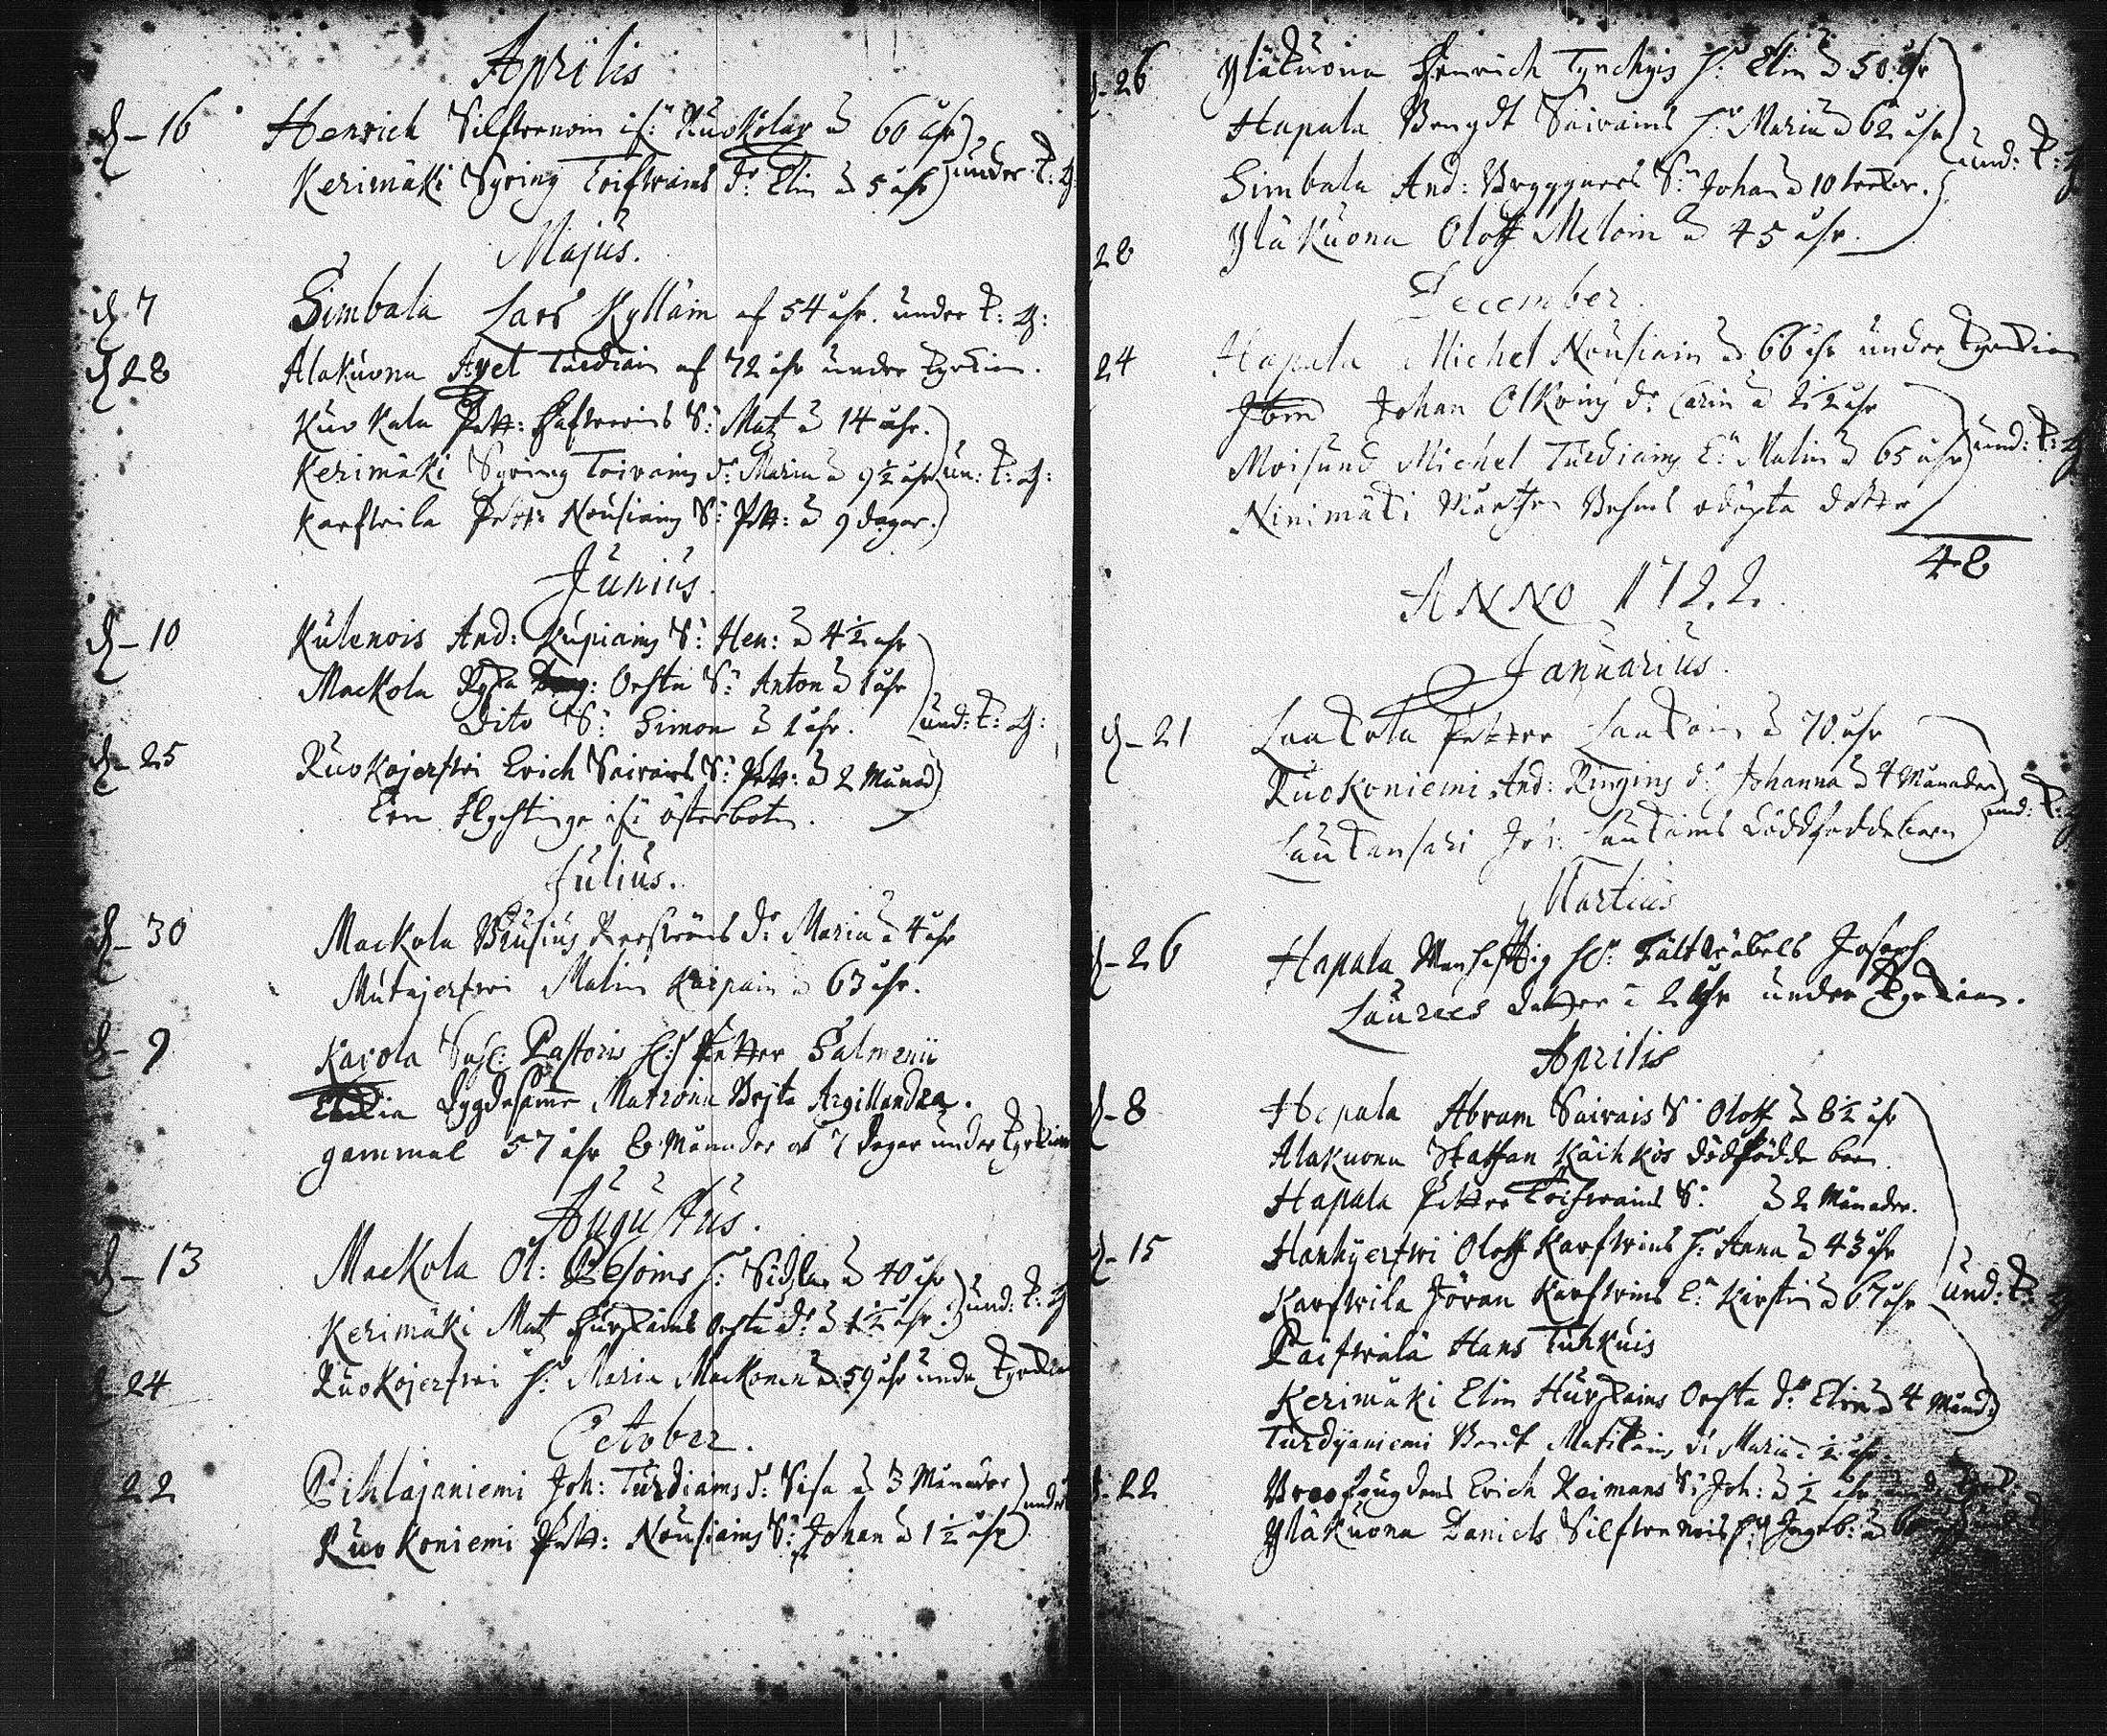 Aprilis
d - 16 Henrich Silfwenoin if: Kuokolax a 60 åhr
Kerimäki Syring Toifwains dr Elin a 5 åhr under k: g:
Majus.
d 7 Simbala Lars Kylläin af 54 åhr. under k: g:
d 28 Alakuona Axel Turdiain af 72 åhr under kyrkian.
Kuokala Pett: S: Matz a 14 åhr.
Kerimäki Syring Toivains dr Maria a 9 1/2 åhr un: k: g:
Karfwila Pett: Nousiains S: Pett: a 9 dagar.
Junius.
d - 10 Kulenois And: Kupiains S: Hen: a 4 1/2 åhr
Mackola Oechta S: Anton a 1 åhr
Dito S: Simon a 1 åhr. und: k: g:
d - 25 Ruokojerfwi Erich Sairais S: Pett: a 2 Månad
Een Flychtinge if: österbotn.
Julius.
d - 30 Mackola Brusius dr Maria a 4 åhr
Mutajerfwi Malin Karpain a 63 åhr.
d - 9 Karola Sahl: Pastoris H: Petter Salmenii
Dygdesamme Matrona Brjta Argillandra.
gammal 57 åhr 8 Månader ok 7 dagar under kyrkian
Augustus.
d - 13 Mackola Ol: Pesoins h: Sidzla a 40 åhr
Kerimäki Mat Hurskains oechta dr a 1 1/2 åhr. und: k: g
24 Ruokojerfwi h: Maria Mackonen a 59 åhr unde kyrkia
October.
22 Pihlajaniemi Joh: Turdiains d: Lisa a 3 Månader
Ruokoniemi Pett: Nousiains S: Johan a 1 1/2 åhr under
d - 26 Yläkuona Henrich Tynchyis h: Elin a 50 åhr
Hapala Bengdt Sairains h: Maria a 62 åhr
Simbala And: S: Johan a 10 weckor. und: k: g
28 Yläkuona Oloff Meloin a 45 åhr.
December.
24 Hapala Michel Nousiain a 66 åhr under kyrkian
Ibm Johan Olkoins dr Carin a 2 1/2 åhr
Moisund Michel Turdiains E: Malin a 65 åhr und: k: g
Ninimäki Mårthen odöpta dotter
48
ANNO 1722.
Januarius.
d - 21 Laukola Petter Laukain a 70 åhr
Ruokoniemi And: Ringins dr Johanna a 4 Månader
Laukansari Joh: Laukains dödfödde barn und: k: g
Martius
d - 26 Hapala Manhafftig H: Fältwäbels Joseph
Laurees dotter a 2 åhr under kyrkian.
Aprilis
d - 8 Hapala Abram Sairais S: Oloff a 8 1/2 åhr
Alakuona Staffan Käihkös dödfödde barn.
Hapala Petter Toifwains S: a 2 Månader.
d - 15 Hanhijerfwi Oloff Karfwins h: Anna a 43 åhr
Karfwila Jöran Karfwins E: Kirstin a 67 åhr und: k: g
Paifwälä Hans Tuhkuis
Kerimäki Elin Hurskains Oechta dr Elin a 4 Månad:
Turdijaniemi Bendt Matikains dr Maria a 1/2 åhr.
d - 22 Erich Reimans S: Joh: a 1/2 åhr
Yläkuona Daniels Silfwenois h: Ingeb: a